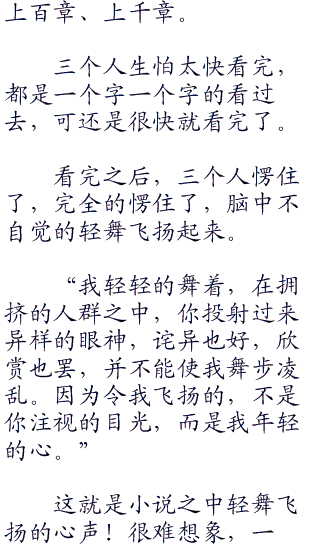 上百章、上千章。
三个人生怕太快看完，
都是一个字一个字的看过
去，可还是很快就看完了。
看完之后，三个人愣住
了，完全的愣住了，脑中不
自觉的轻舞飞扬起来。
“我轻轻的舞着，在拥
挤的人群之中，你投射过来
异样的眼神，诧异也好，欣
赏也罢，并不能使我舞步凌
乱。因为令我飞扬的，不是
你注视的目光，而是我年轻
的心。”
这就是小说之中轻舞飞
扬的心声！很难想象，一